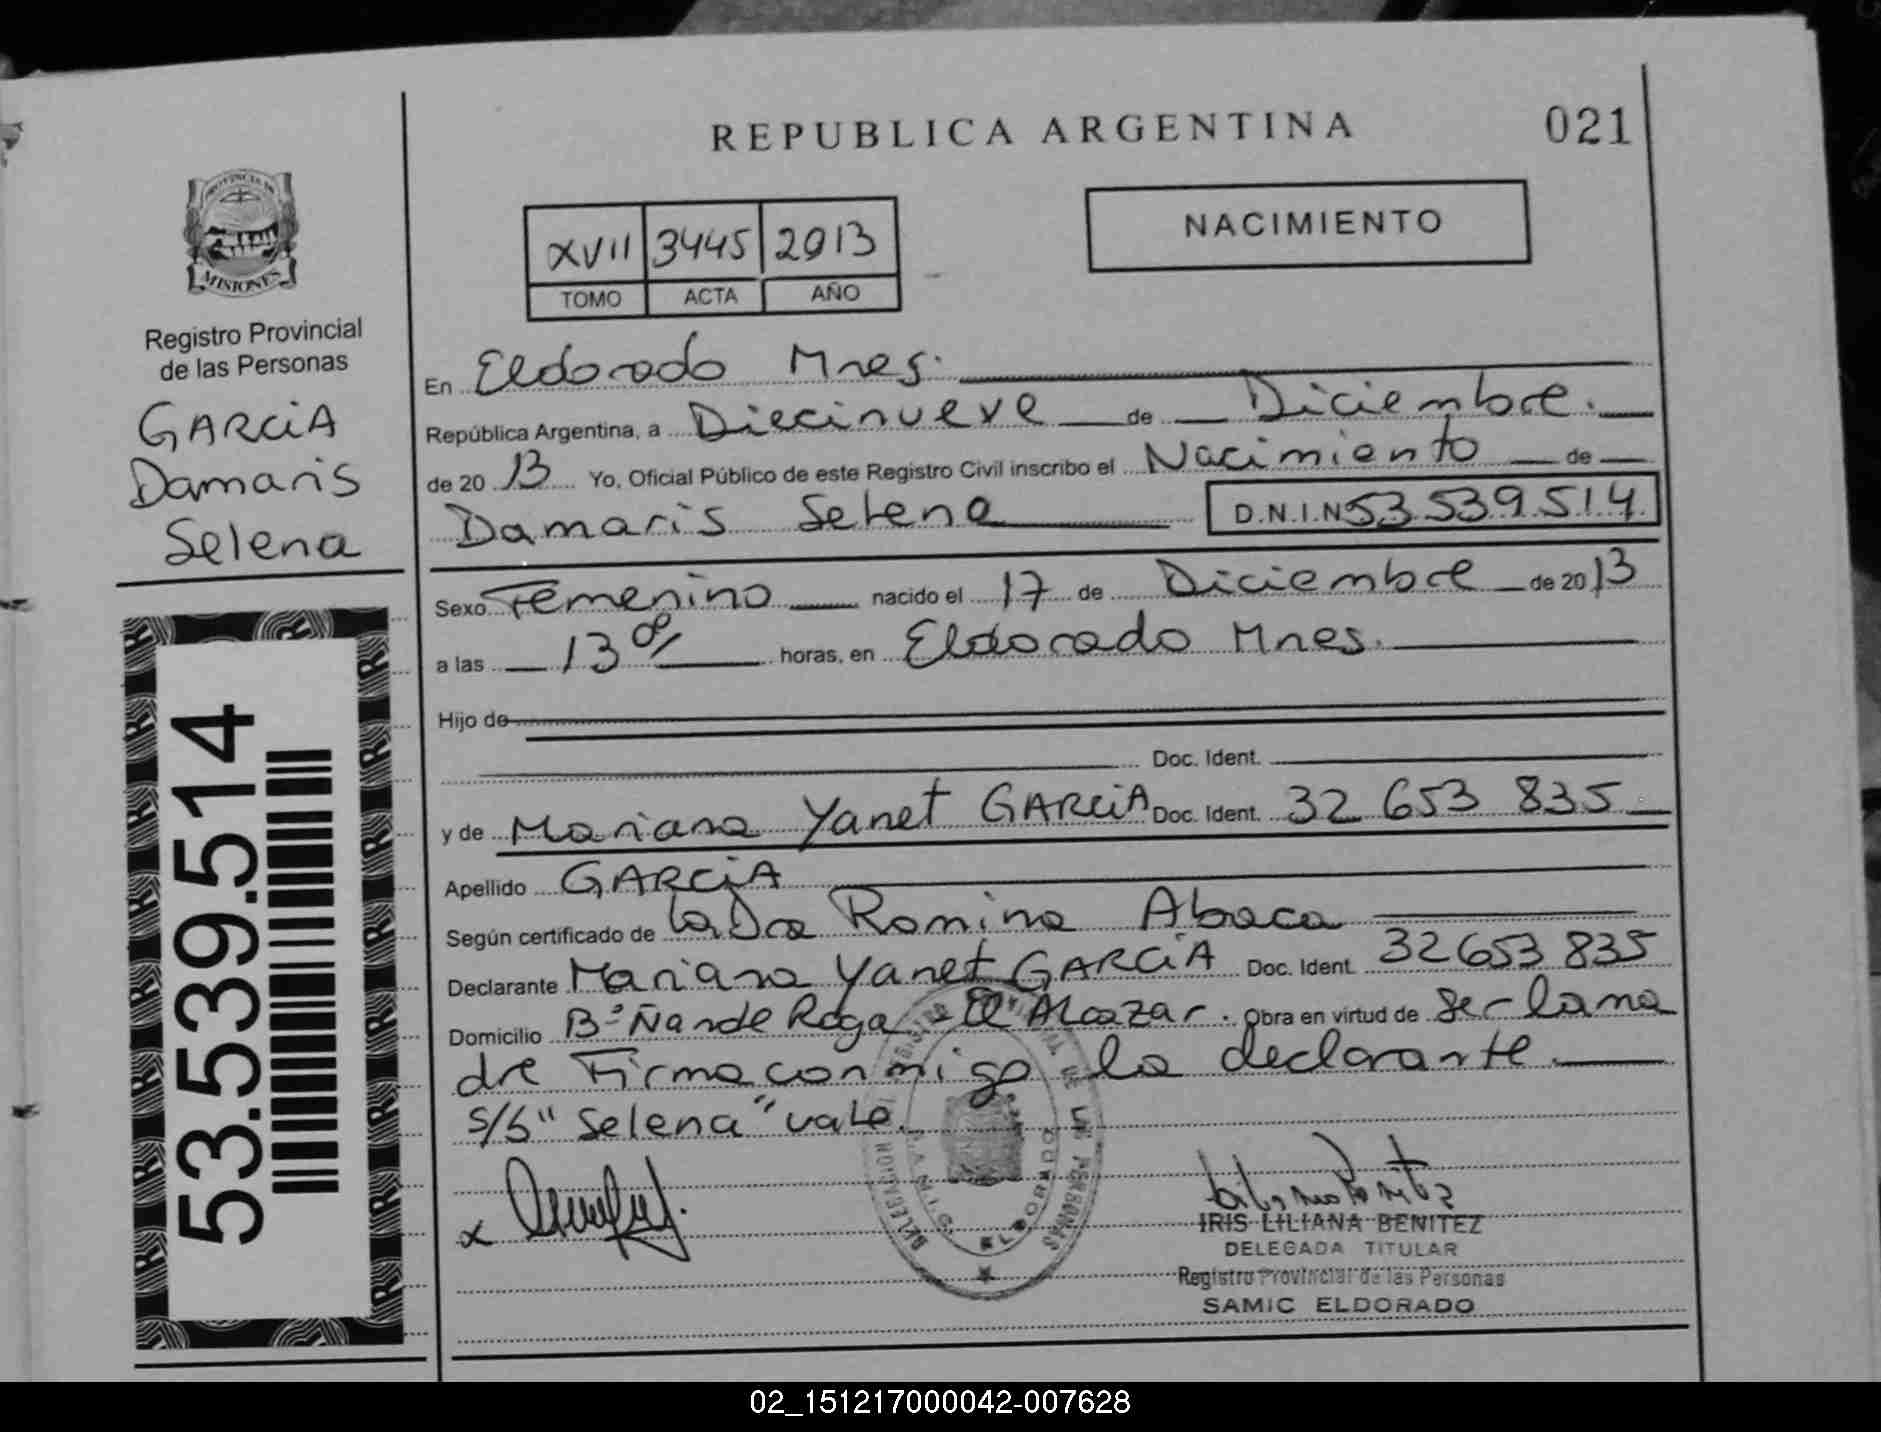 REPUBLICA ARGENTINA
021
PROVINCIA DE
MISIONES
Registro Provincial
de las Personas
GARCIA
Damaris
Selena
53.539.514
XVII 3445 2013
TOMO ACTA AÑO
NACIMIENTO
En Eldorado Mnes.
República Argentina, a Diecinueve de Diciembre.
de 20 13 Yo, Oficial Público de este Registro Civil inscribo el Nacimiento de
Damaris Selena D.N.I.N 53 539 514
Sexo Femenino nacido el 17 de Diciembre de 20 13
a las 13 00 horas, en Eldorado Mnes.
Hijo de
Doc. Ident.
y de Mariana Yanet GARCIA Doc. Ident. 32 653 835
Apellido GARCIA
Según certificado de la Dra Romina Abaca
Declarante Mariana Yanet GARCIA Doc. Ident. 32 653 835
Domicilio Bº Ñande Roga - El Alcazar. Obra en virtud de ser la ma
dre Firma conmigo la declarante.
S/b "Selena" vale.
x
IRIS LILIANA BENITEZ
DELEGADA TITULAR
Registro Provincial de las Personas
SAMIC ELDORADO
02_151217000042-007628